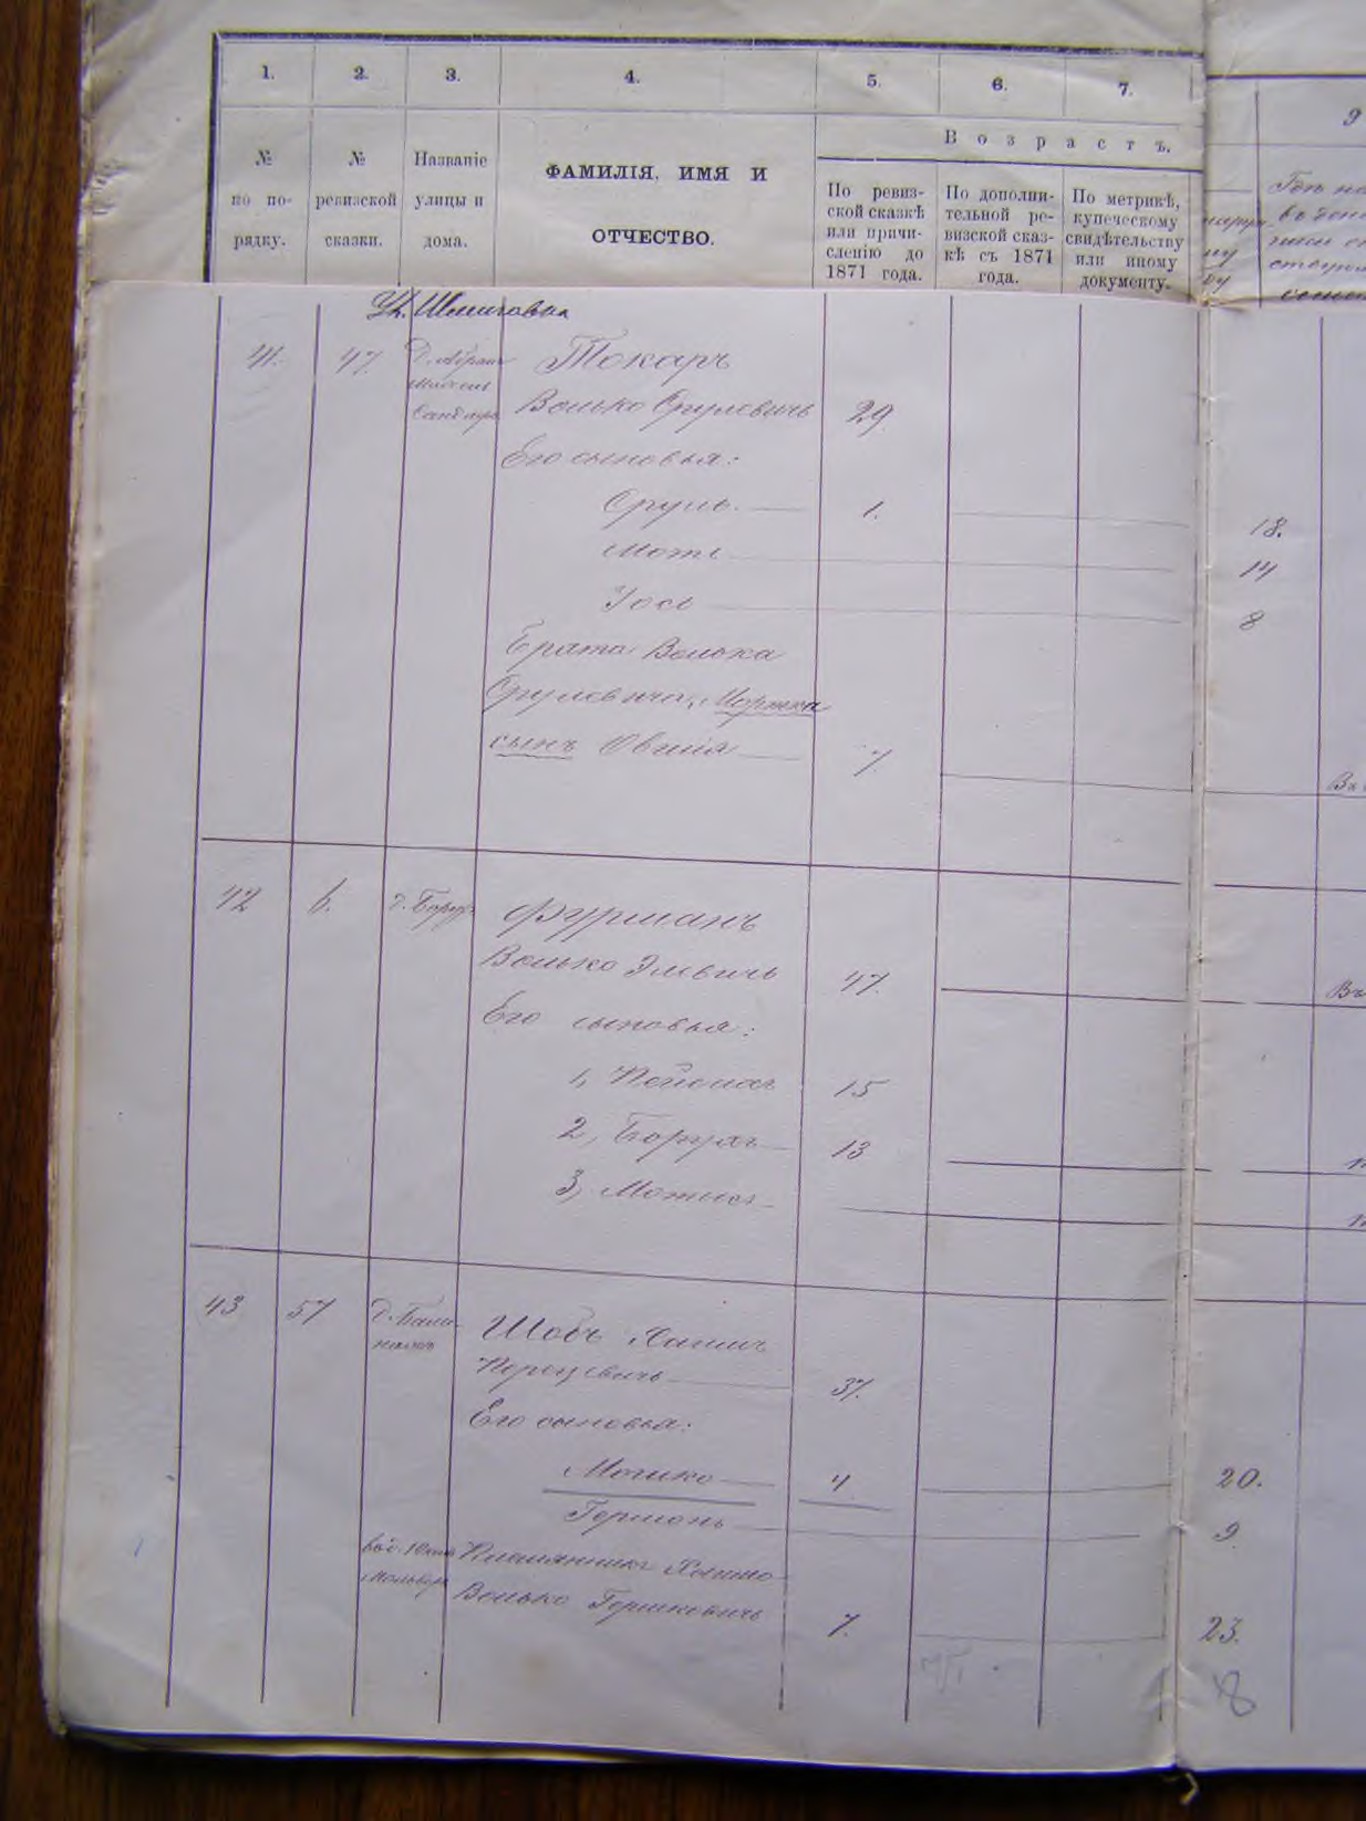 1. 2. 3. 4. 5. 6. 7. 9
№ по по-рядку.
№ ревизской сказки.
Названіе улицы и дома.
ФАМИЛІЯ, ИМЯ И ОТЧЕСТВО.
Возрастъ.
По ревиз-
ской сказкѣ
или причи-
сленію до
1871 года.
По дополни-
тельной ре-
визской сказ-
кѣ съ 1871
года.
По метрикѣ,
купеческому
свидѣтельству
или иному
документу.
41. 47. Токаръ
Волько Сруловичъ 29
Его сыновья:
Сруль 1. 18.
Мотя 14
Іось 8
Брата Волька
Сруловича, Мортка
сынъ Овшія 7.
42 6. д. Борух Фурманъ
Волько Элевичъ 47.
Его сыновья:
1, Пейсахъ 15
2, Борухъ 13
3, Мотель
43 57 Шобъ Хаимъ
Перецевичъ 37.
Его сыновья:
Мошко 4 20.
Гершонъ 9.
Племянникъ Хаима
Волько Гершковичъ 7. 23.